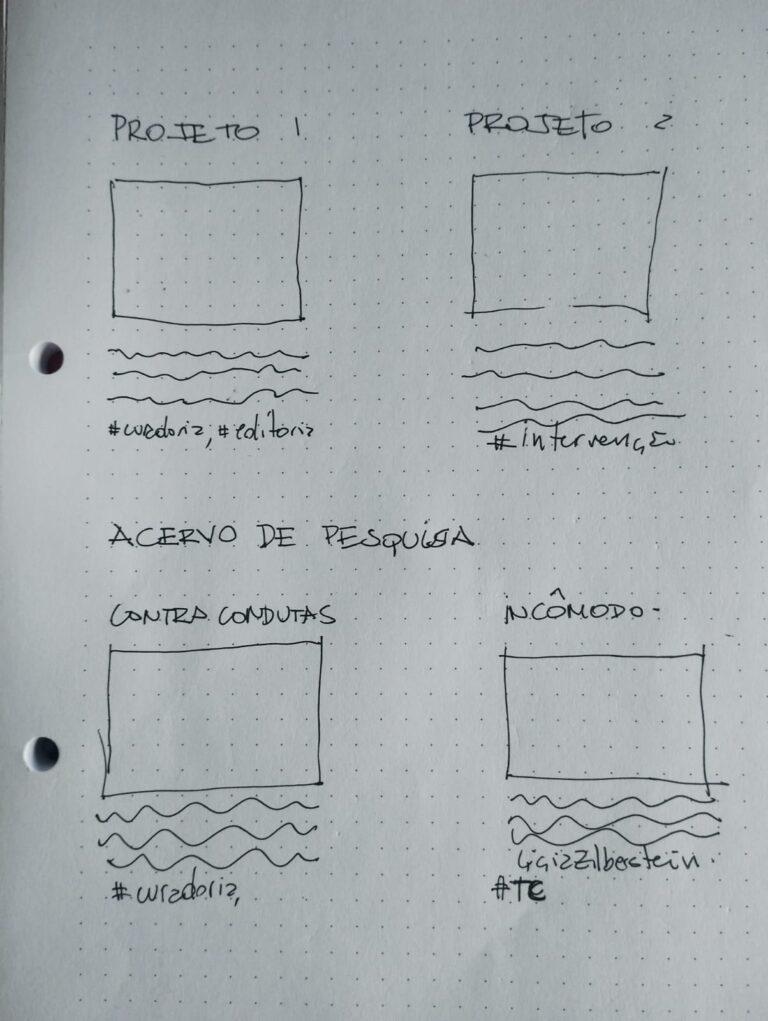 PROJETO 1
PROJETO 2
#curadoria, #editoria
#intervenção
ACERVO DE PESQUISA
CONTRA CONDUTAS
INCÔMODO-
#curadoria,
LigiaZilberstein.
#TC